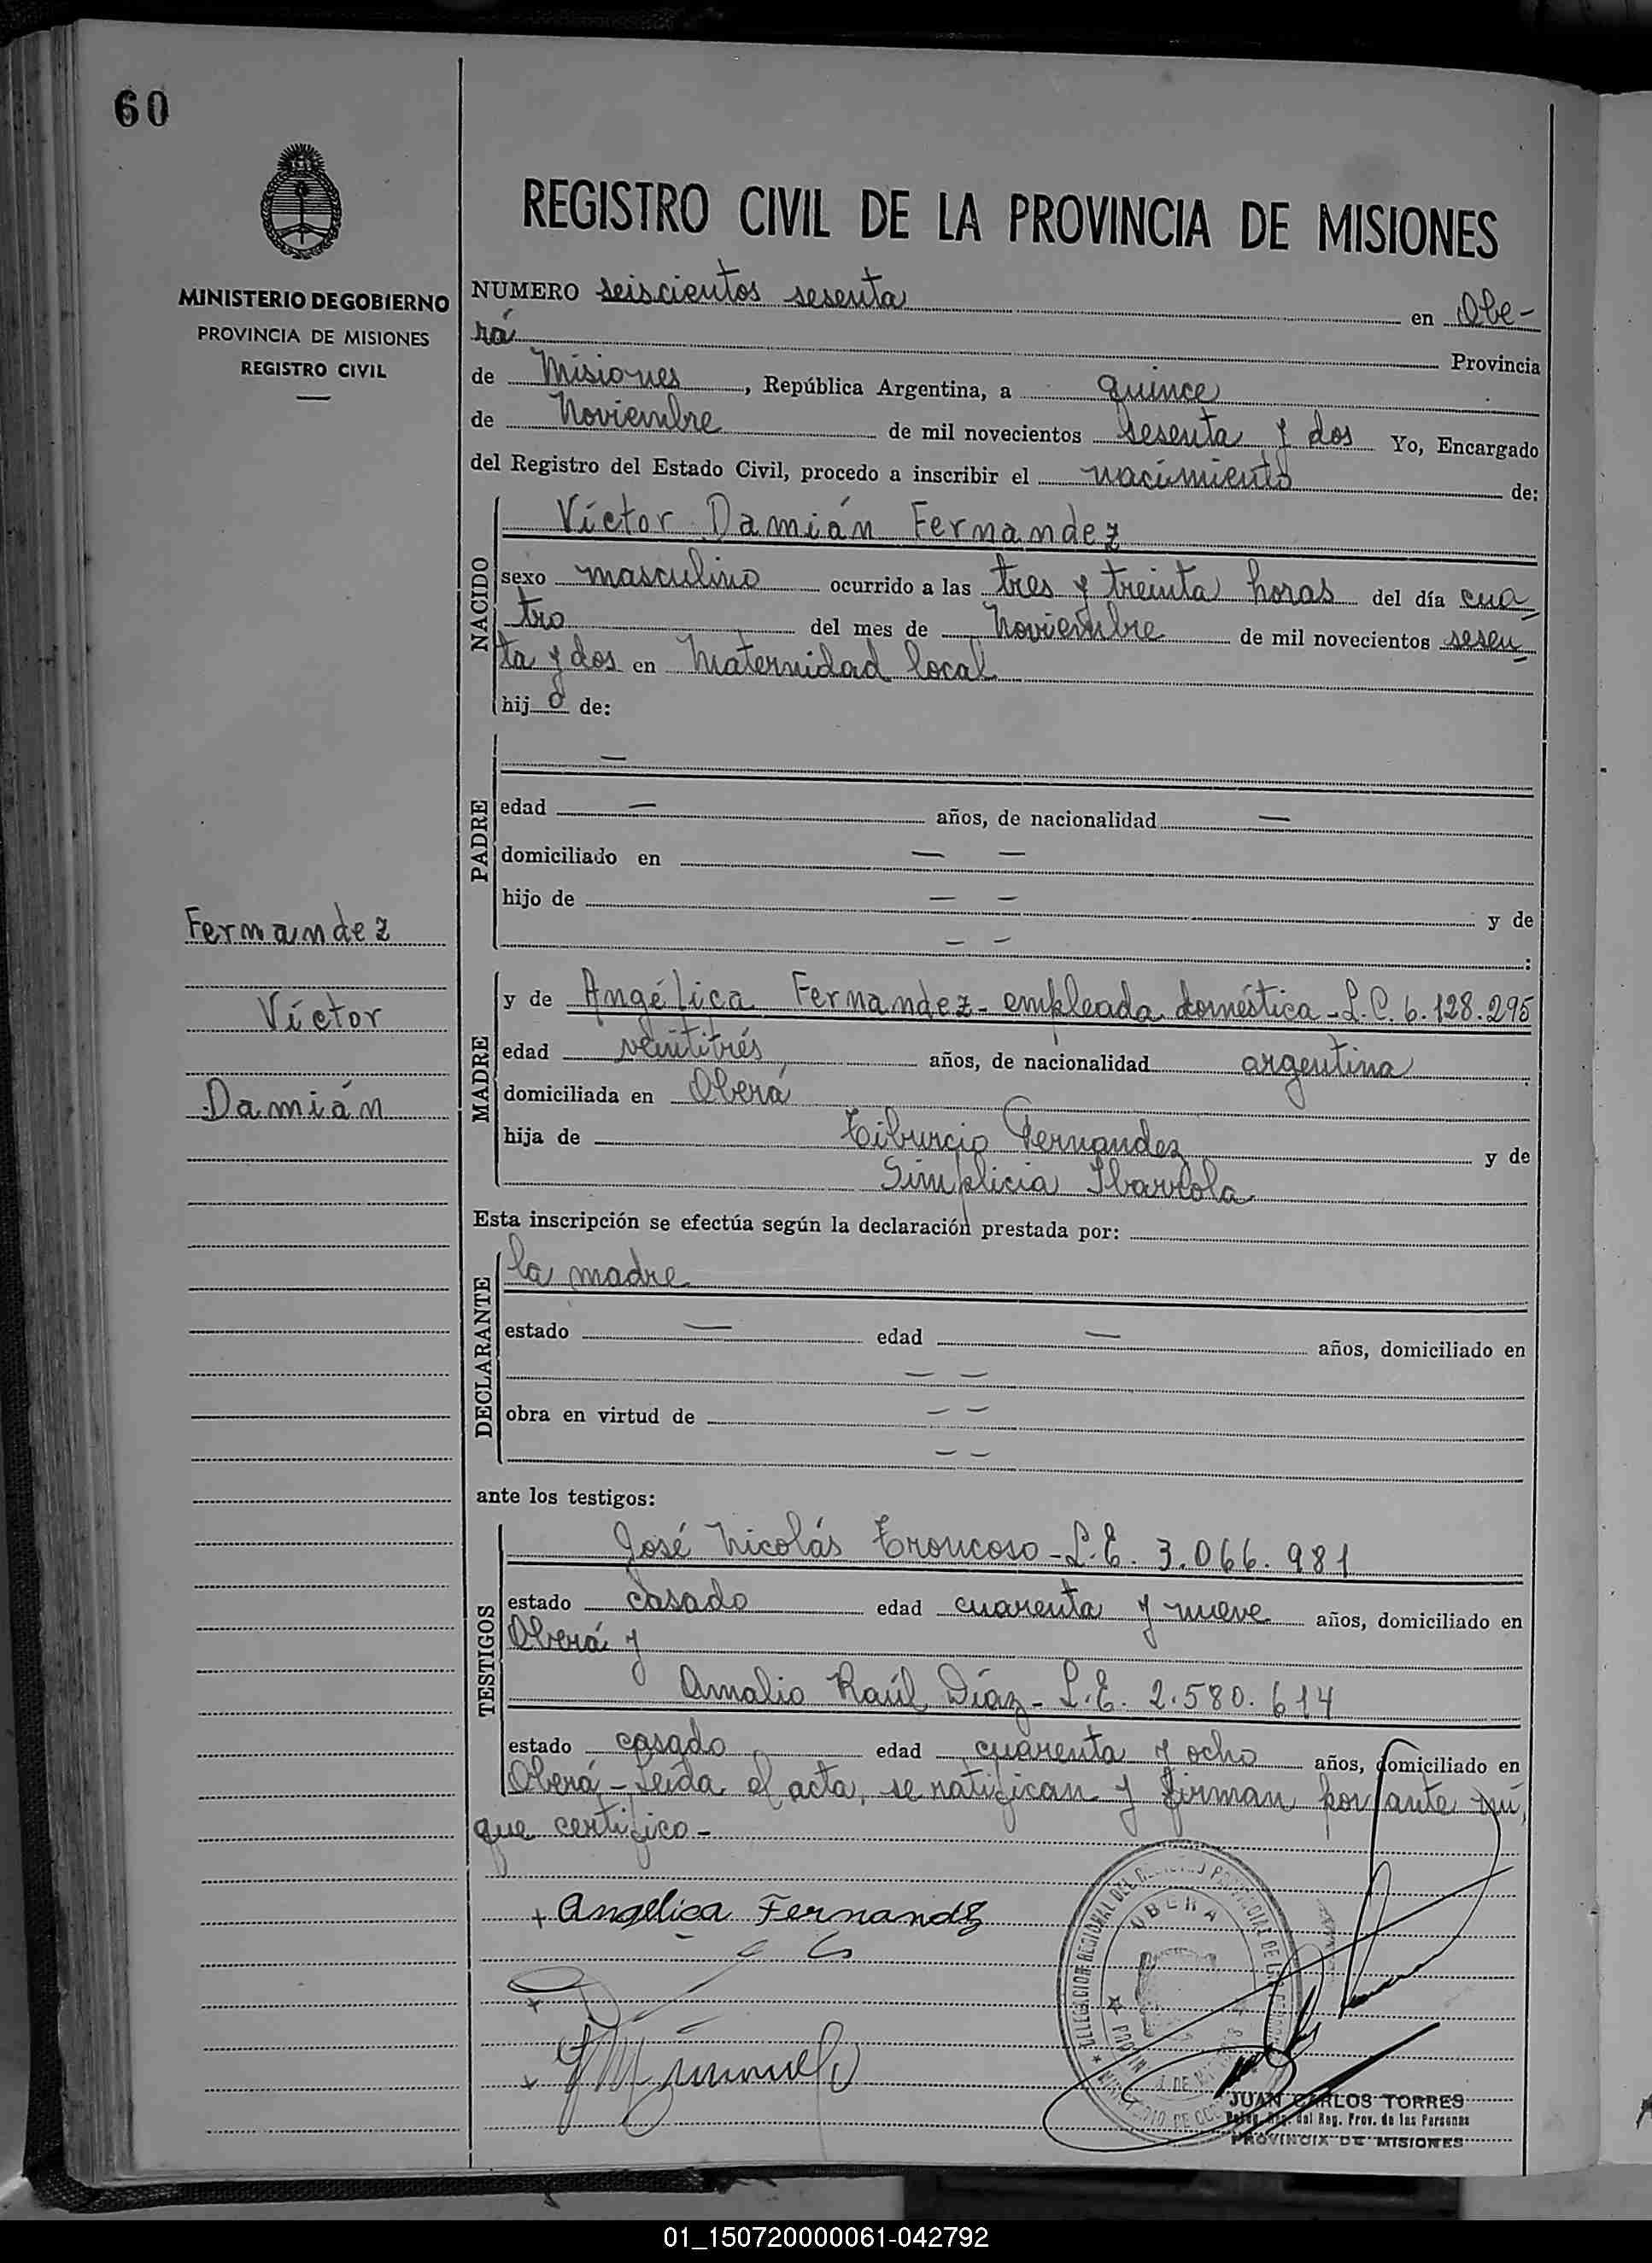 60
MINISTERIO DE GOBIERNO
PROVINCIA DE MISIONES
REGISTRO CIVIL
Fernandez
Víctor
Damián
REGISTRO CIVIL DE LA PROVINCIA DE MISIONES
NUMERO seiscientos sesenta en Obe-
rá Provincia
de Misiones, República Argentina, a quince
de Noviembre de mil novecientos sesenta y dos Yo, Encargado
del Registro del Estado Civil, procedo a inscribir el nacimiento de:
NACIDO
Víctor Damián Fernandez
sexo masculino ocurrido a las tres y treinta horas del día cua
tro del mes de Noviembre de mil novecientos sesen
ta y dos en Maternidad local
hijo de:
PADRE
—
edad — años, de nacionalidad —
domiciliado en — —
hijo de — — y de
— — :
MADRE
y de Angélica Fernandez - empleada doméstica - L.C. 6.128.295
edad veintitrés años, de nacionalidad argentina
domiciliada en Oberá
hija de Tiburcio Fernandez y de
Simplicia Ibarrola
Esta inscripción se efectúa según la declaración prestada por:
DECLARANTE
la madre
estado — edad — años, domiciliado en
— —
obra en virtud de — —
— —
ante los testigos:
TESTIGOS
José Nicolás Troncoso - L.E. 3.066.981
estado casado edad cuarenta y nueve años, domiciliado en
Oberá y
Amalio Raúl Díaz - L.E. 2.580.614
estado casado edad cuarenta y ocho años, domiciliado en
Oberá - Leída el acta, se ratifican y firman por ante mí,
que certifico -
+ Angelica Fernandz
OBERA
JUAN CARLOS TORRES
del Reg. Prov. de las Personas
PROVINCIA DE MISIONES
01_150720000061-042792